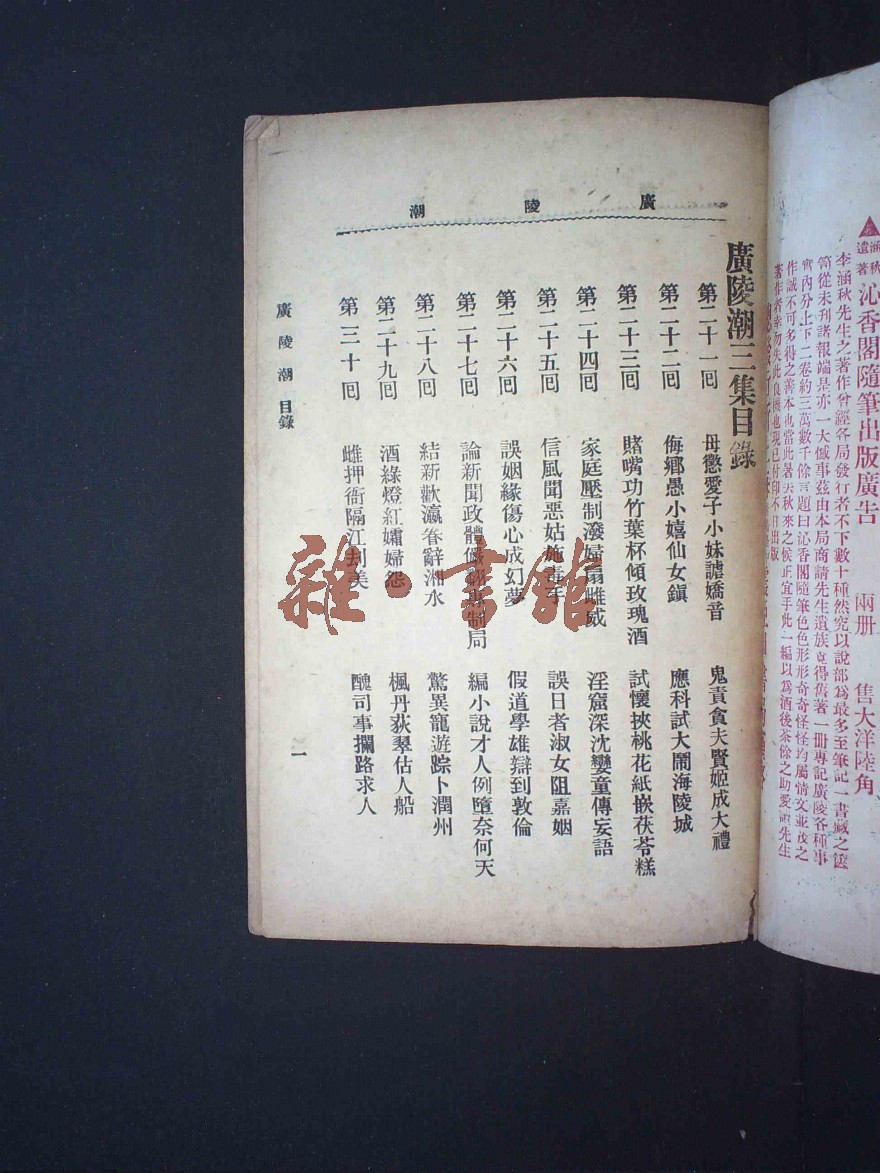 ▲涵秋遺著 沁香閣隨筆出版廣告 兩册 售大洋陸角
李涵秋先生之著作曾經各局發行者不下數十種然究以說部爲最多至筆記一書藏之篋
笥從未刊諸報端是亦一大憾事茲由本局商請先生遺族竟得舊著一冊專記廣陵各種事
實內分上下二卷約三萬數千餘言題曰沁香閣隨筆色色形形奇奇怪怪均屬情文並茂之
作誠不可多得之善本也當此暑去秋來之候正宜手此一編以爲酒後茶餘之助愛讀先生
著作者幸勿失此良機也現已付印不日出版
廣陵潮
廣陵潮三集目錄
第二十一囘 母懲愛子小妹謔嬌音 鬼責貪夫賢姬成大禮
第二十二囘 侮鄉愚小嬉仙女鎭 應科試大鬧海陵城
第二十三囘 賭嘴功竹葉杯傾玫瑰酒 試懷挾桃花紙嵌茯苓糕
第二十四囘 家庭壓制潑婦扇雌威 淫窟深沈孌童傳妄語
第二十五囘 信風聞惡姑施毒手 誤日者淑女阻嘉姻
第二十六囘 誤姻緣傷心成幻夢 假道學雄辯到敦倫
第二十七囘 論新聞政體制局 編小說才人例墮奈何天
第二十八囘 結新歡瀛眷辭湘水 驚異寵遊踪卜潤州
第二十九囘 酒綠燈紅孀婦怨 楓丹荻翠估人船
第三十囘 雌押衙隔江刦美 醜司事攔路求人
廣陵潮 目錄
一
雜·書館